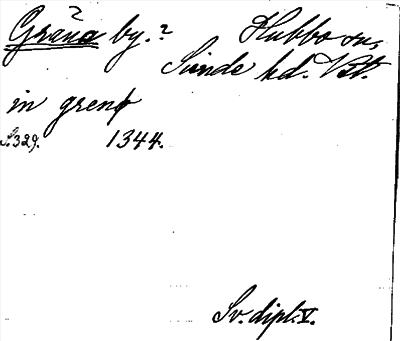 Gräna? by.? Hubbo sn,
Siende hd. Vst.
in grenø
S. 329. 1344.
Sv. dipl. V.